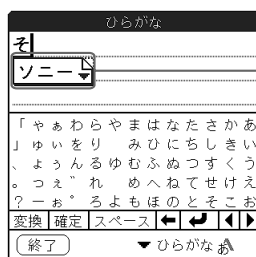 ひらがな
そ
ソニー
「 ゃ ぁ わ ら や ま は な た さ か あ
」 ゅ ぃ を り み ひ に ち し き い
、 ょ ぅ ん る ゆ む ふ ぬ つ す く う
。 っ ぇ ゛ れ め へ ね て せ け え
? ー ぉ ゜ ろ よ も ほ の と そ こ お
変換 確定 スペース
終了 ひらがな あA